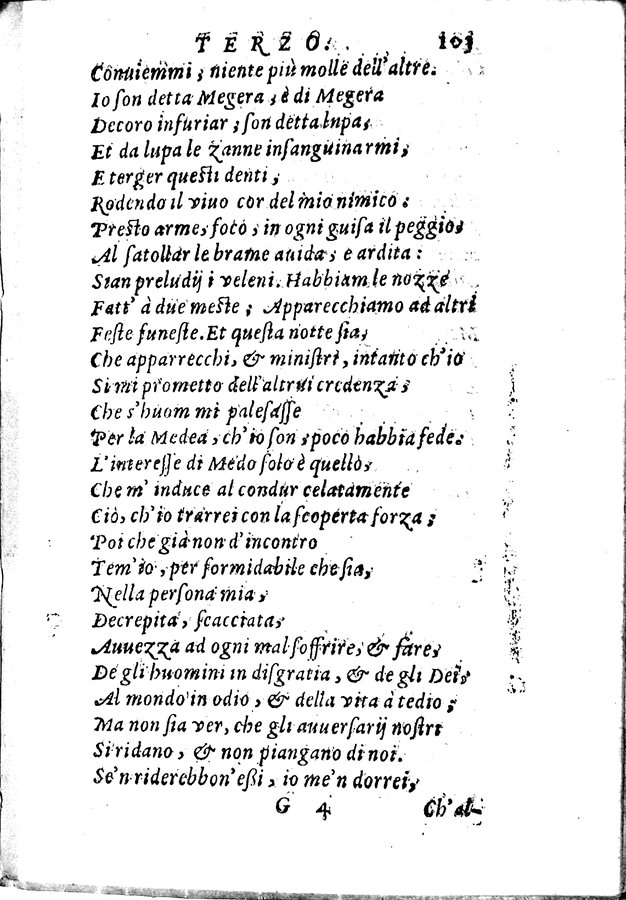 TERZO. 103
Conuiemmi, niente più molle dell'altre.
Io ſon detta Megera, è di Megera
Decoro infuriar; ſon detta lupa,
Et da lupa le zanne inſanguinarmi,
E terger queſti denti,
Rodendo il viuo cor del mio nimico:
Preſto arme, foco, in ogni guiſa il peggio,
Al ſatollar le brame auida, e ardita:
Sian preludij i veleni. Habbiam le nozze
Fatt' à due meſte; Apparecchiamo ad altri
Feſte funeſte. Et queſta notte ſia,
Che apparrecchi, & miniſtri, intanto ch'io
Si mi prometto dell'altrui credenza,
Che s'huom mi paleſaſſe
Per la Medea, ch'io ſon, poco habbia fede.
L'intereſſe di Medo ſolo è quello,
Che m' induce al condur celatamente
Ciò, ch'io trarrei con la ſcoperta forza;
Poi che già non d'incontro
Tem'io, per formidabile che ſia,
Nella perſona mia,
Decrepita, ſcacciata,
Auuezza ad ogni mal ſoffrire, & fare,
De gli huomini in diſgratia, & de gli Dei,
Al mondo in odio, & della vita à tedio;
Ma non ſia ver, che gli auuerſarij noſtri
Si ridano, & non piangano di noi.
Se'n riderebbon'eßi, io me'n dorrei,
G 4 Ch'al-